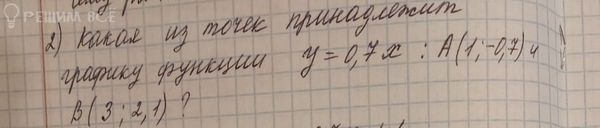 РЕШИМ ВСЁ
2) Какая из точек принадлежит
графику функции y = 0,7x : A(1; -0,7) и
B(3; 2,1) ?